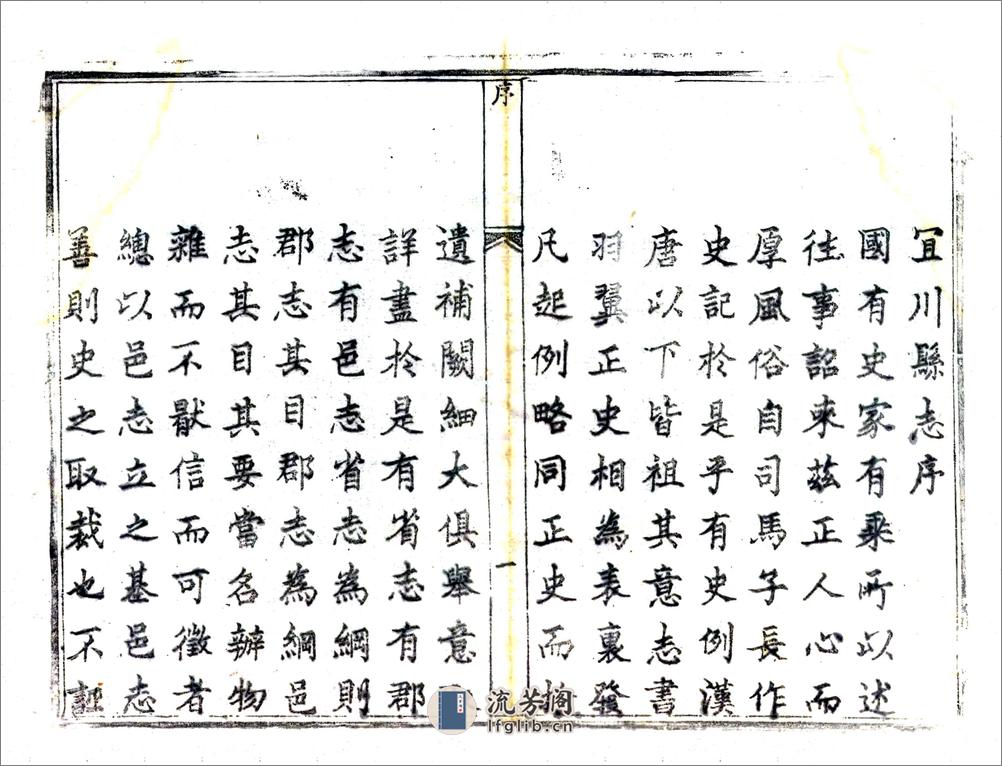 宜川縣志序
國有史家有乘所以述
徃事詔來茲正人心而
厚風俗自司馬子長作
史記於是乎有史例漢
唐以下皆祖其意志書
羽翼正史相為表裏發
凡起例略同正史而
序
一
遺補闕細大俱舉意
詳盡於是有省志有郡
志有邑志省志為綱則
郡志其目郡志為綱邑
志其目其要當名辦物
雜而不猒信而可徵者
總以邑志立之基邑志
善則史之取裁也不
流芳阁
lfglib.cn